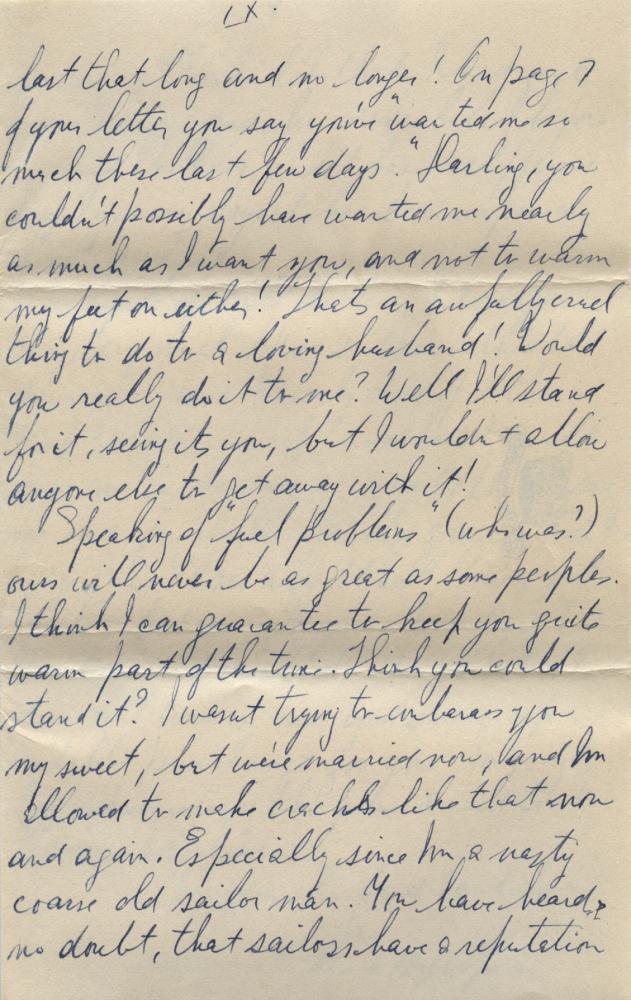 IX.
last that long and no longer! On page 7
of your letter you say you've "wanted me so
much these last few days." Darling, you
couldn't possibly have wanted me nearly
as much as I want you, and not to warm
my feet on either! Thats an awfully cruel
thing to do to a loving husband! Would
you really do it to me? Well I'll stand
for it, seeing its you, but I wouldnt allow
anyone else to get away with it!
Speaking of "fuel problems" (who was?)
ours will never be as great as some peoples.
I think I can guarantee to keep you quite
warm part of the time. Think you could
stand it? I wasnt trying to embarass you
my sweet, but we're married now, and Im
allowed to make cracks like that now
and again. Especially since Im a nasty
coarse old sailor man. You have heard,
no doubt, that sailors have a reputation